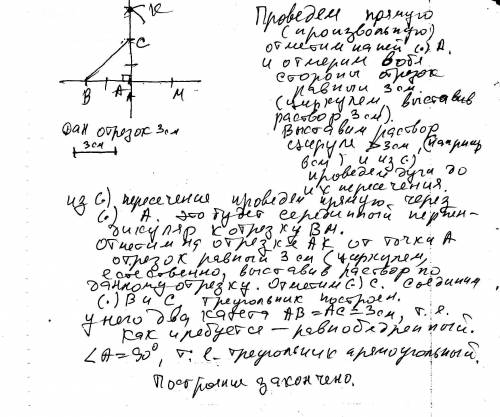 К
С
В
А
А
М
Дан отрезок 3см
3см
Проведем прямую
(произвольную)
отметим на ней (.) А.
и отмерим в обе
стороны отрезок
равный 3см
(циркулем, выставив
раствор 3см).
Выставим раствор
циркуля >3см, (например
) и из (.)
проведем дуги до
их пересечения.
из (.) пересечения проведем прямую через
(.) А. это будет серединный перпен-
дикуляр к отрезку ВМ.
Отметим на отрезке АК от точки А
отрезок равный 3см (циркулем,
естественно, выставив раствор по
данному отрезку. Отметим (.) С. Соединим
(.) В и С, треугольник построен.
у него два катета АВ=АС=3см, т.е.
как требуется — равнобедренный.
∠А=90°, т.е. треугольник прямоугольный.
Построение закончено.